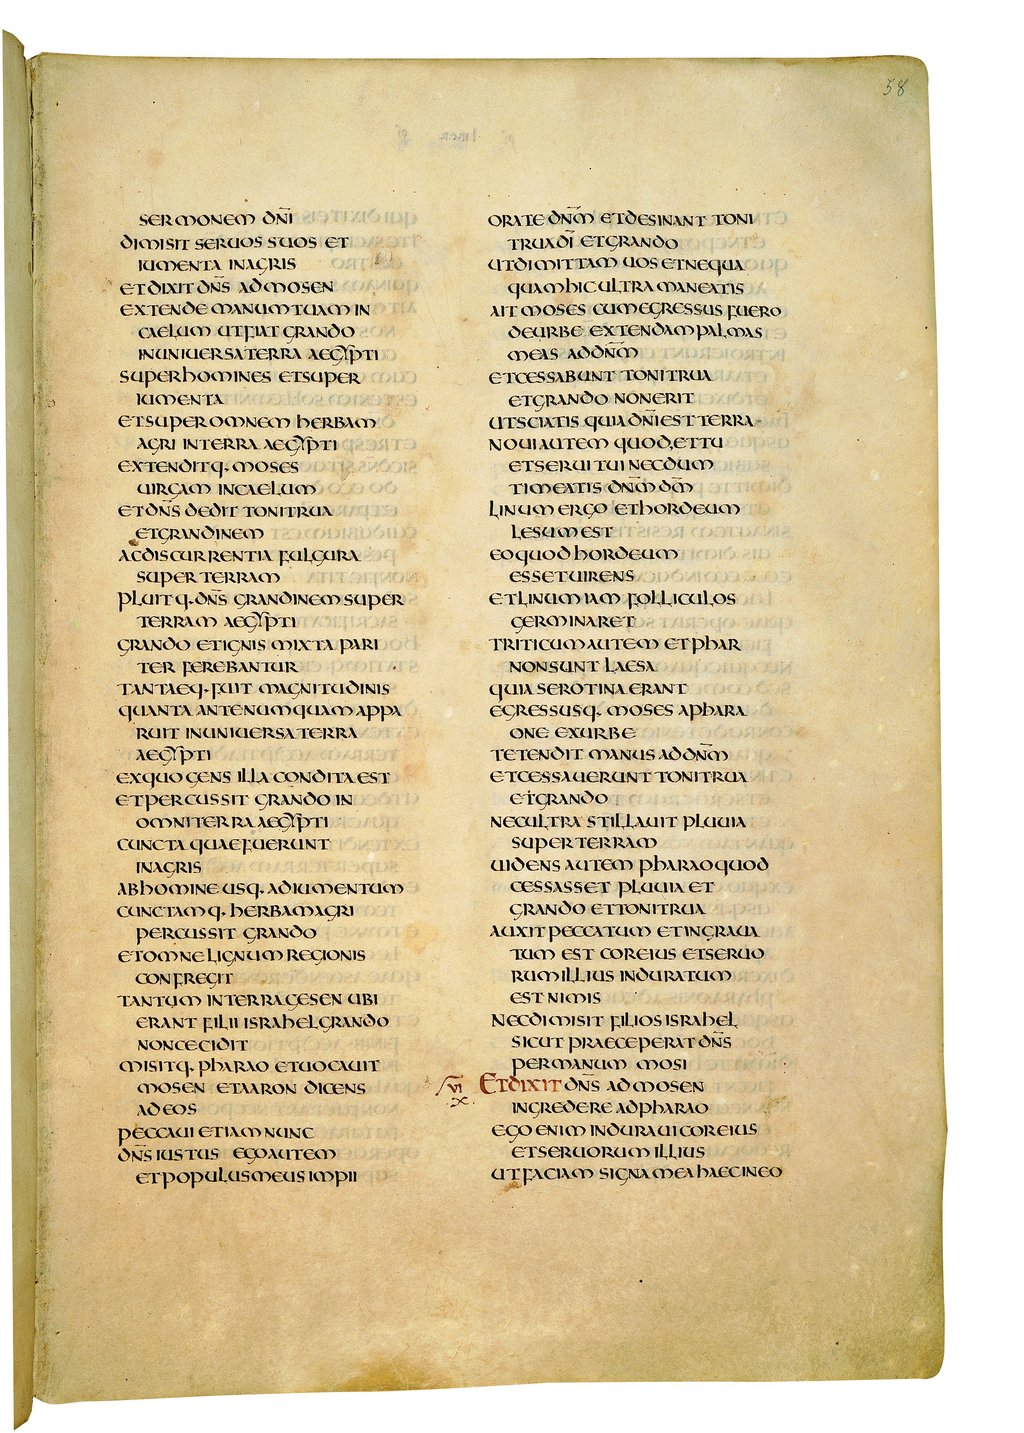 58
SERMONEM DN̅I
DIMISIT SERUOS SUOS ET
IUMENTA IN AGRIS
ET DIXIT DN̅S AD MOSEN
EXTENDE MANUM TUAM IN
CAELUM UT FIAT GRANDO
IN UNIUERSA TERRA AEGYPTI
SUPER HOMINES ET SUPER
IUMENTA
ET SUPER OMNEM HERBAM
AGRI IN TERRA AEGYPTI
EXTENDITQ· MOSES
UIRGAM IN CAELUM
ET DN̅S DEDIT TONITRUA
ET GRANDINEM
AC DISCURRENTIA FULGURA
SUPER TERRAM
PLUITQ· DN̅S GRANDINEM SUPER
TERRAM AEGYPTI
GRANDO ET IGNIS MIXTA PARI
TER FEREBANTUR
TANTAEQ· FUIT MAGNITUDINIS
QUANTA ANTE NUMQUAM APPA
RUIT IN UNIUERSA TERRA
AEGYPTI
EX QUO GENS ILLA CONDITA EST
ET PERCUSSIT GRANDO IN
OMNI TERRA AEGYPTI
CUNCTA QUAE FUERUNT
IN AGRIS
AB HOMINE USQ· AD IUMENTUM
CUNCTAMQ· HERBAM AGRI
PERCUSSIT GRANDO
ET OMNE LIGNUM REGIONIS
CONFREGIT
TANTUM IN TERRA GESEN UBI
ERANT FILII ISRAHEL GRANDO
NON CECIDIT
MISITQ· PHARAO ET UOCAUIT
MOSEN ET AARON DICENS
AD EOS
PECCAUI ETIAM NUNC
DN̅S IUSTUS EGO AUTEM
ET POPULUS MEUS IMPII
ORATE DN̅M ET DESINANT TONI
TRUA DI̅ ET GRANDO
UT DIMITTAM UOS ET NEQUA
QUAM HIC ULTRA MANEATIS
AIT MOSES CUM EGRESSUS FUERO
DE URBE EXTENDAM PALMAS
MEAS AD DN̅M
ET CESSABUNT TONITRUA
ET GRANDO NON ERIT
UT SCIATIS QUIA DN̅I EST TERRA·
NOUI AUTEM QUOD ET TU
ET SERUI TUI NECDUM
TIMEATIS DN̅M DM̅
LINUM ERGO ET HORDEUM
LESUM EST
EO QUOD HORDEUM
ESSET UIRENS
ET LINUM IAM FOLLICULOS
GERMINARET
TRITICUM AUTEM ET PHAR
NON SUNT LAESA
QUIA SEROTINA ERANT
EGRESSUSQ· MOSES A PHARA
ONE EX URBE
TETENDIT MANUS AD DN̅M
ET CESSAUERUNT TONITRUA
ET GRANDO
NEC ULTRA STILLAUIT PLUUIA
SUPER TERRAM
UIDENS AUTEM PHARAO QUOD
CESSASSET PLUUIA ET
GRANDO ET TONITRUA
AUXIT PECCATUM ET INGRAUA
TUM EST COR EIUS ET SERUO
RUM ILLIUS INDURATUM
EST NIMIS
NEC DIMISIT FILIOS ISRAHEL
SICUT PRAECEPERAT DN̅S
PER MANUM MOSI
ET DIXIT DN̅S AD MOSEN
INGREDERE AD PHARAO
EGO ENIM INDURAUI COR EIUS
ET SERUORUM ILLIUS
UT FACIAM SIGNA MEA HAEC IN EO